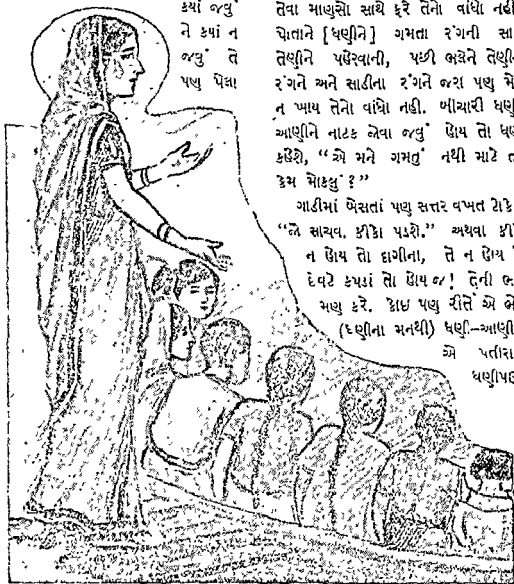 કયાં જવું
ને કયાં ન
જવું તે
પણ પેલા
તેવા માણસો સાથે ફરે તેનો વાંધો નહી
પોતાને [ધણીને] ગમતા રંગની સા
તેણીને પહેરવાની, પછી ભલેને તેણીન
રંગને અને સાડીના રંગને જરા પણ મે
ન ખાય તેનો વાંધો નહી. બીચારી ધણ
આણીને નાટક જોવા જવું હોય તો ધણ
કહેશે, “એ મને ગમતું નથી માટે ત
કેમ મોકલું ?”
ગાડીમાં બેસતાં પણ સત્તર વખત ટોકે
“જો સાચવ. કીકા પડશે.” અથવા કી
ન હોય તો દાગીના, તે ન હોય
દેવટે કપડાં તો હોય જ! તેની ભ
મણ કરે. કોઇ પણ રીતે એ બે
(ધણીના મનથી) ધણી–આણી
એ પતીરા
ધણીપણ